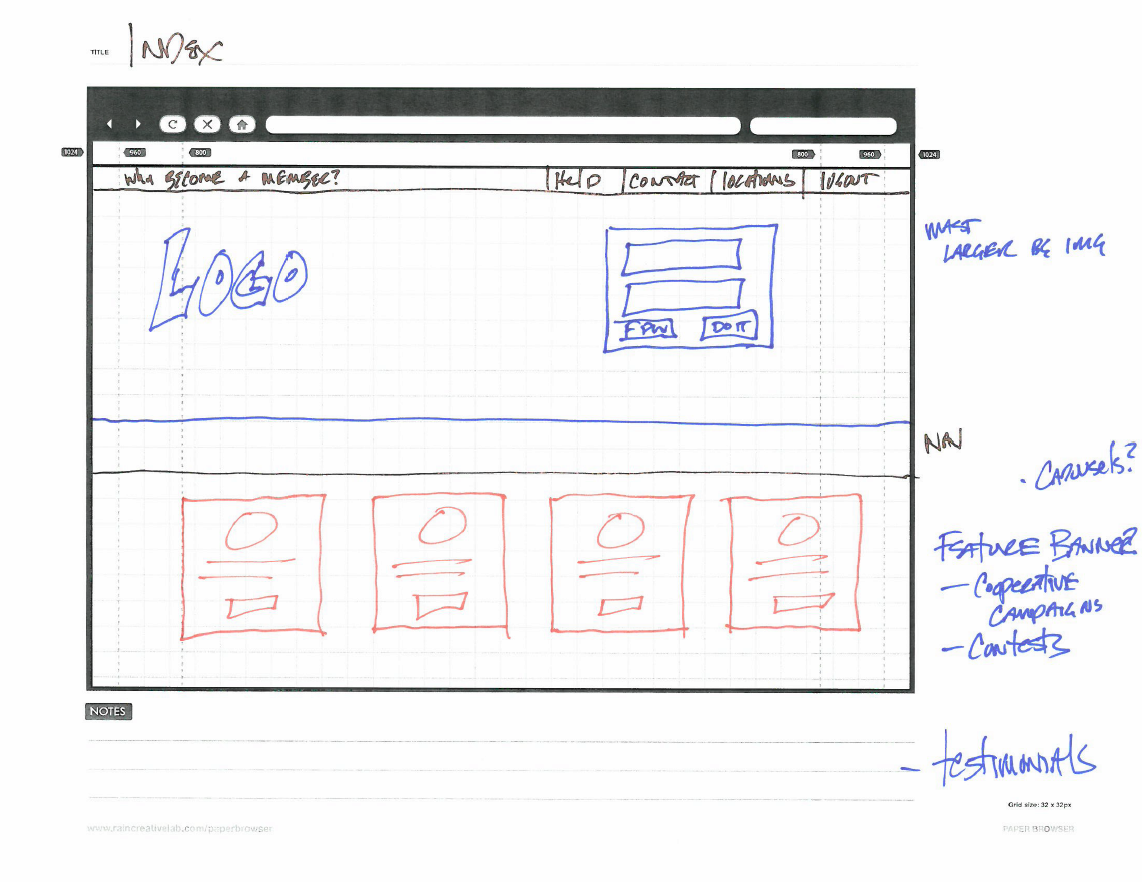 TITLE INDEX
1024 960 800 800 960 1024
WHY BECOME A MEMBER? HELP CONTACT LOCATIONS LOGOUT
MAST
LARGER BG IMG
LOGO
FPW DO IT
NAV
· CAROUSELS?
FEATURE BANNER?
– COOPERATIVE
CAMPAIGNS
– CONTESTS
NOTES
– TESTIMONIALS
Grid size: 32 x 32px
www.raincreativelab.com/paperbrowser PAPER BROWSER